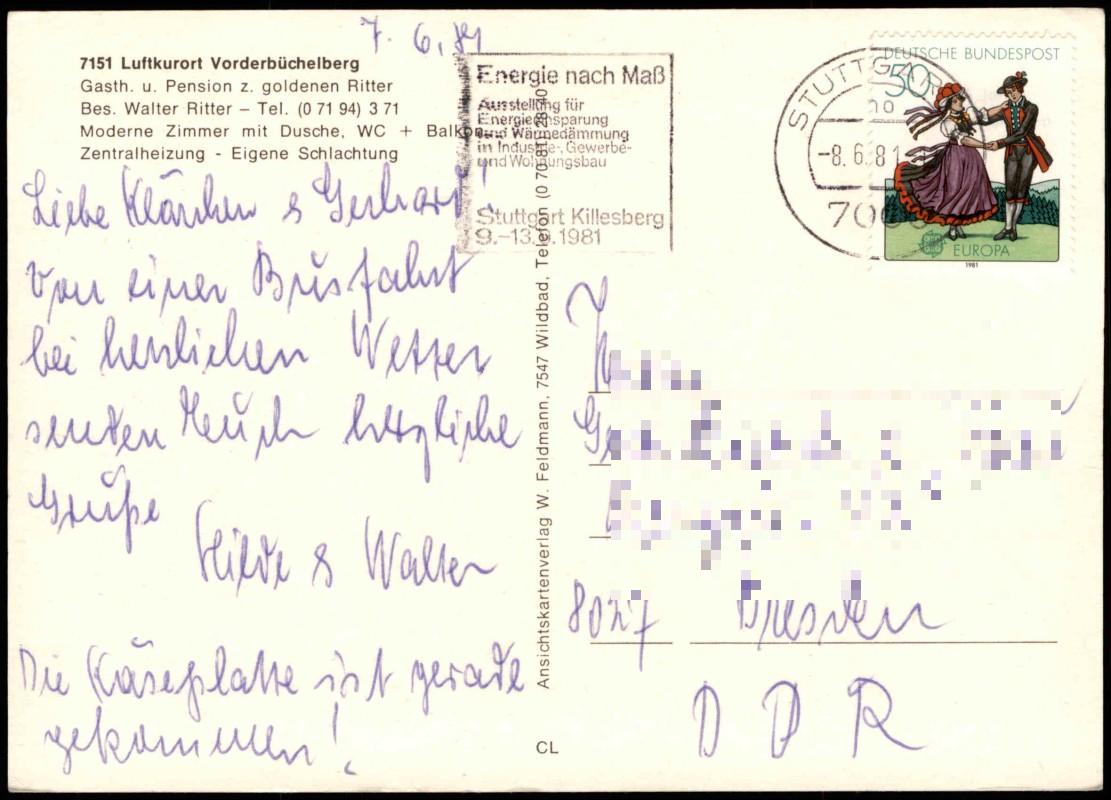 7.6.81
7151 Luftkurort Vorderbüchelberg
Gasth. u. Pension z. goldenen Ritter
Bes. Walter Ritter – Tel. (0 71 94) 3 71
Moderne Zimmer mit Dusche, WC + Balkon
Zentralheizung - Eigene Schlachtung
Liebe Klärchen & Gerhard!
Von einer Busfahrt
bei herrlichen Wetter
senden Euch herzliche
Grüße
Hilde & Walter
Die Käseplatte ist gerade
gekommen!
Energie nach Maß
Ausstellung für
Energieeinsparung
und Wärmedämmung
in Industrie-, Gewerbe-
und Wohnungsbau
Stuttgart Killesberg
1981
Ansichtskartenverlag W. Feldmann, 7547 Wildbad, Telefon (0 70 81)
CL
STUTTGART
-8.6.81
DEUTSCHE BUNDESPOST
50
EUROPA
1981
8027 Dresden
DDR